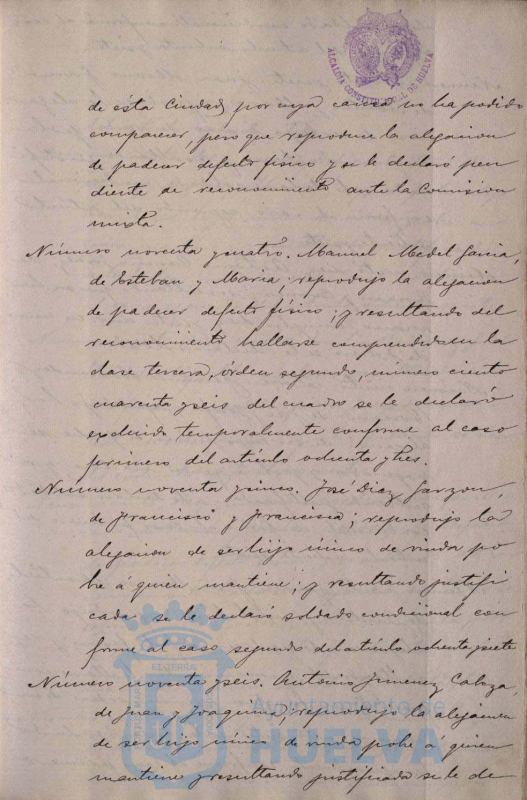 ALCALDIA CONSTITUCIONAL DE HUELVA
de ésta Ciudad, por cuya causa no ha podido
comparecer, pero que reproduce la alegacion
de padecer defecto físico y se le declaró pen
diente de reconocimiento ante la Comision
mixta.
Número noventa y cuatro. Manuel Medel Garcia,
de Esteban y Maria; reprodujo la alegacion
de padecer defecto físico; y resultando del
reconocimiento hallarse comprendido en la
clase tercera, órden segundo, número ciento
cuarenta y seis del cuadro se le declaró
excluido temporalmente conforme al caso
primero del artículo ochenta y tres.
Número noventa y cinco. José Diaz Garzon,
de Francisco y Francisca; reprodujo la
alegacion de ser hijo único de viuda po
bre á quien mantiene; y resultando justifi
cada se le declaró soldado condicional con
forme al caso segundo del artículo ochenta y siete
Número noventa y seis. Antonio Jimenez Cabeza,
de Juan y Joaquina; reprodujo la alegacion
de ser hijo único de viuda pobre á quien
mantiene y resultando justificada se le de
Ayuntamiento de
HUELVA